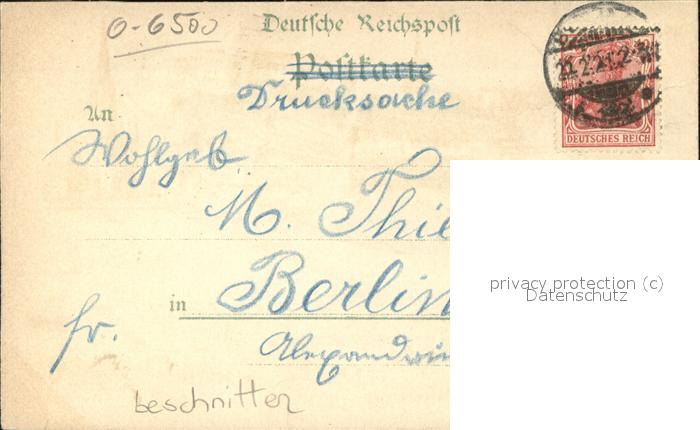 0-6500
Deutsche Reichspost
Postkarte
Drucksache
An
Wohlgeb.
M. Thie
in Berlin
fr.
beschnitten
DEUTSCHES REICH
privacy protection (c)
Datenschutz